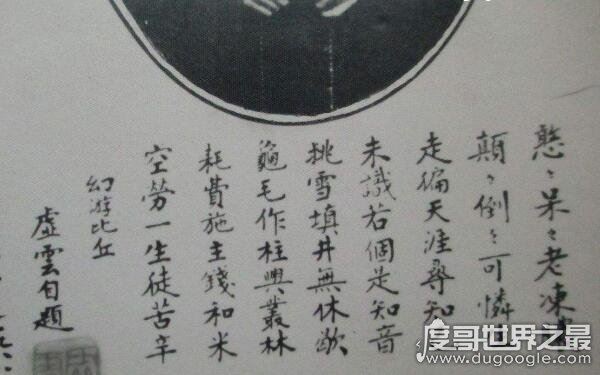 憨々呆々老凍
顛々倒々可憐
走徧天涯尋知
未識若個是知音
挑雪填井無休歇
龜毛作柱興叢林
耗費施主錢和米
空勞一生徒苦辛
幻游比丘
虛雲自題
度哥世界之最
www.dugoogle.com